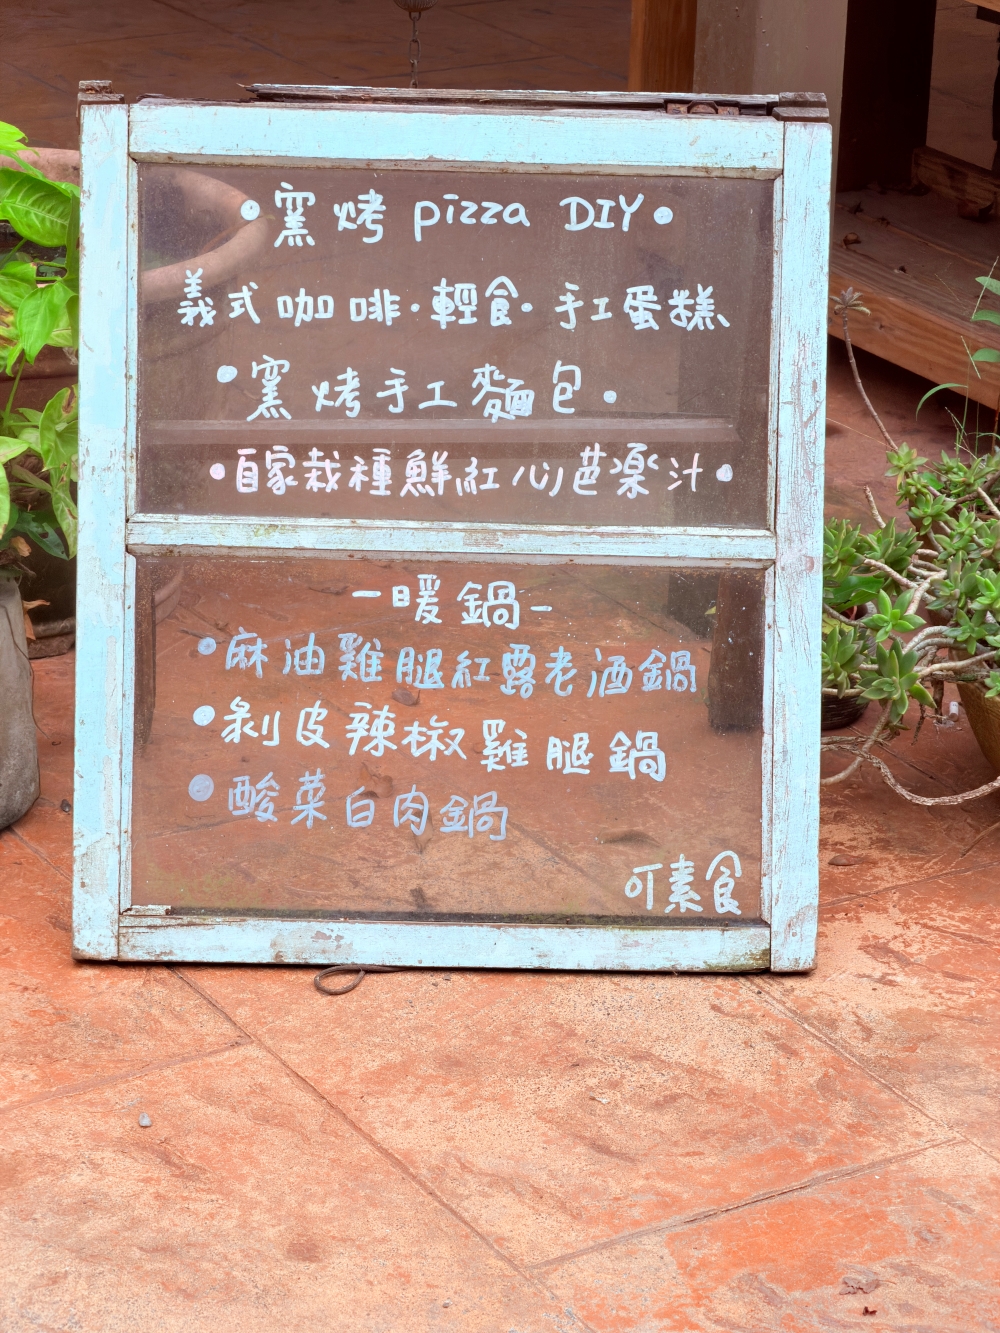 •窯烤pizza DIY•
義式咖啡·輕食·手工蛋糕、
•窯烤手工麵包•
•自家栽種鮮紅心芭樂汁•
－暖鍋－
•麻油雞腿紅露老酒鍋
•剝皮辣椒雞腿鍋
•酸菜白肉鍋
可素食